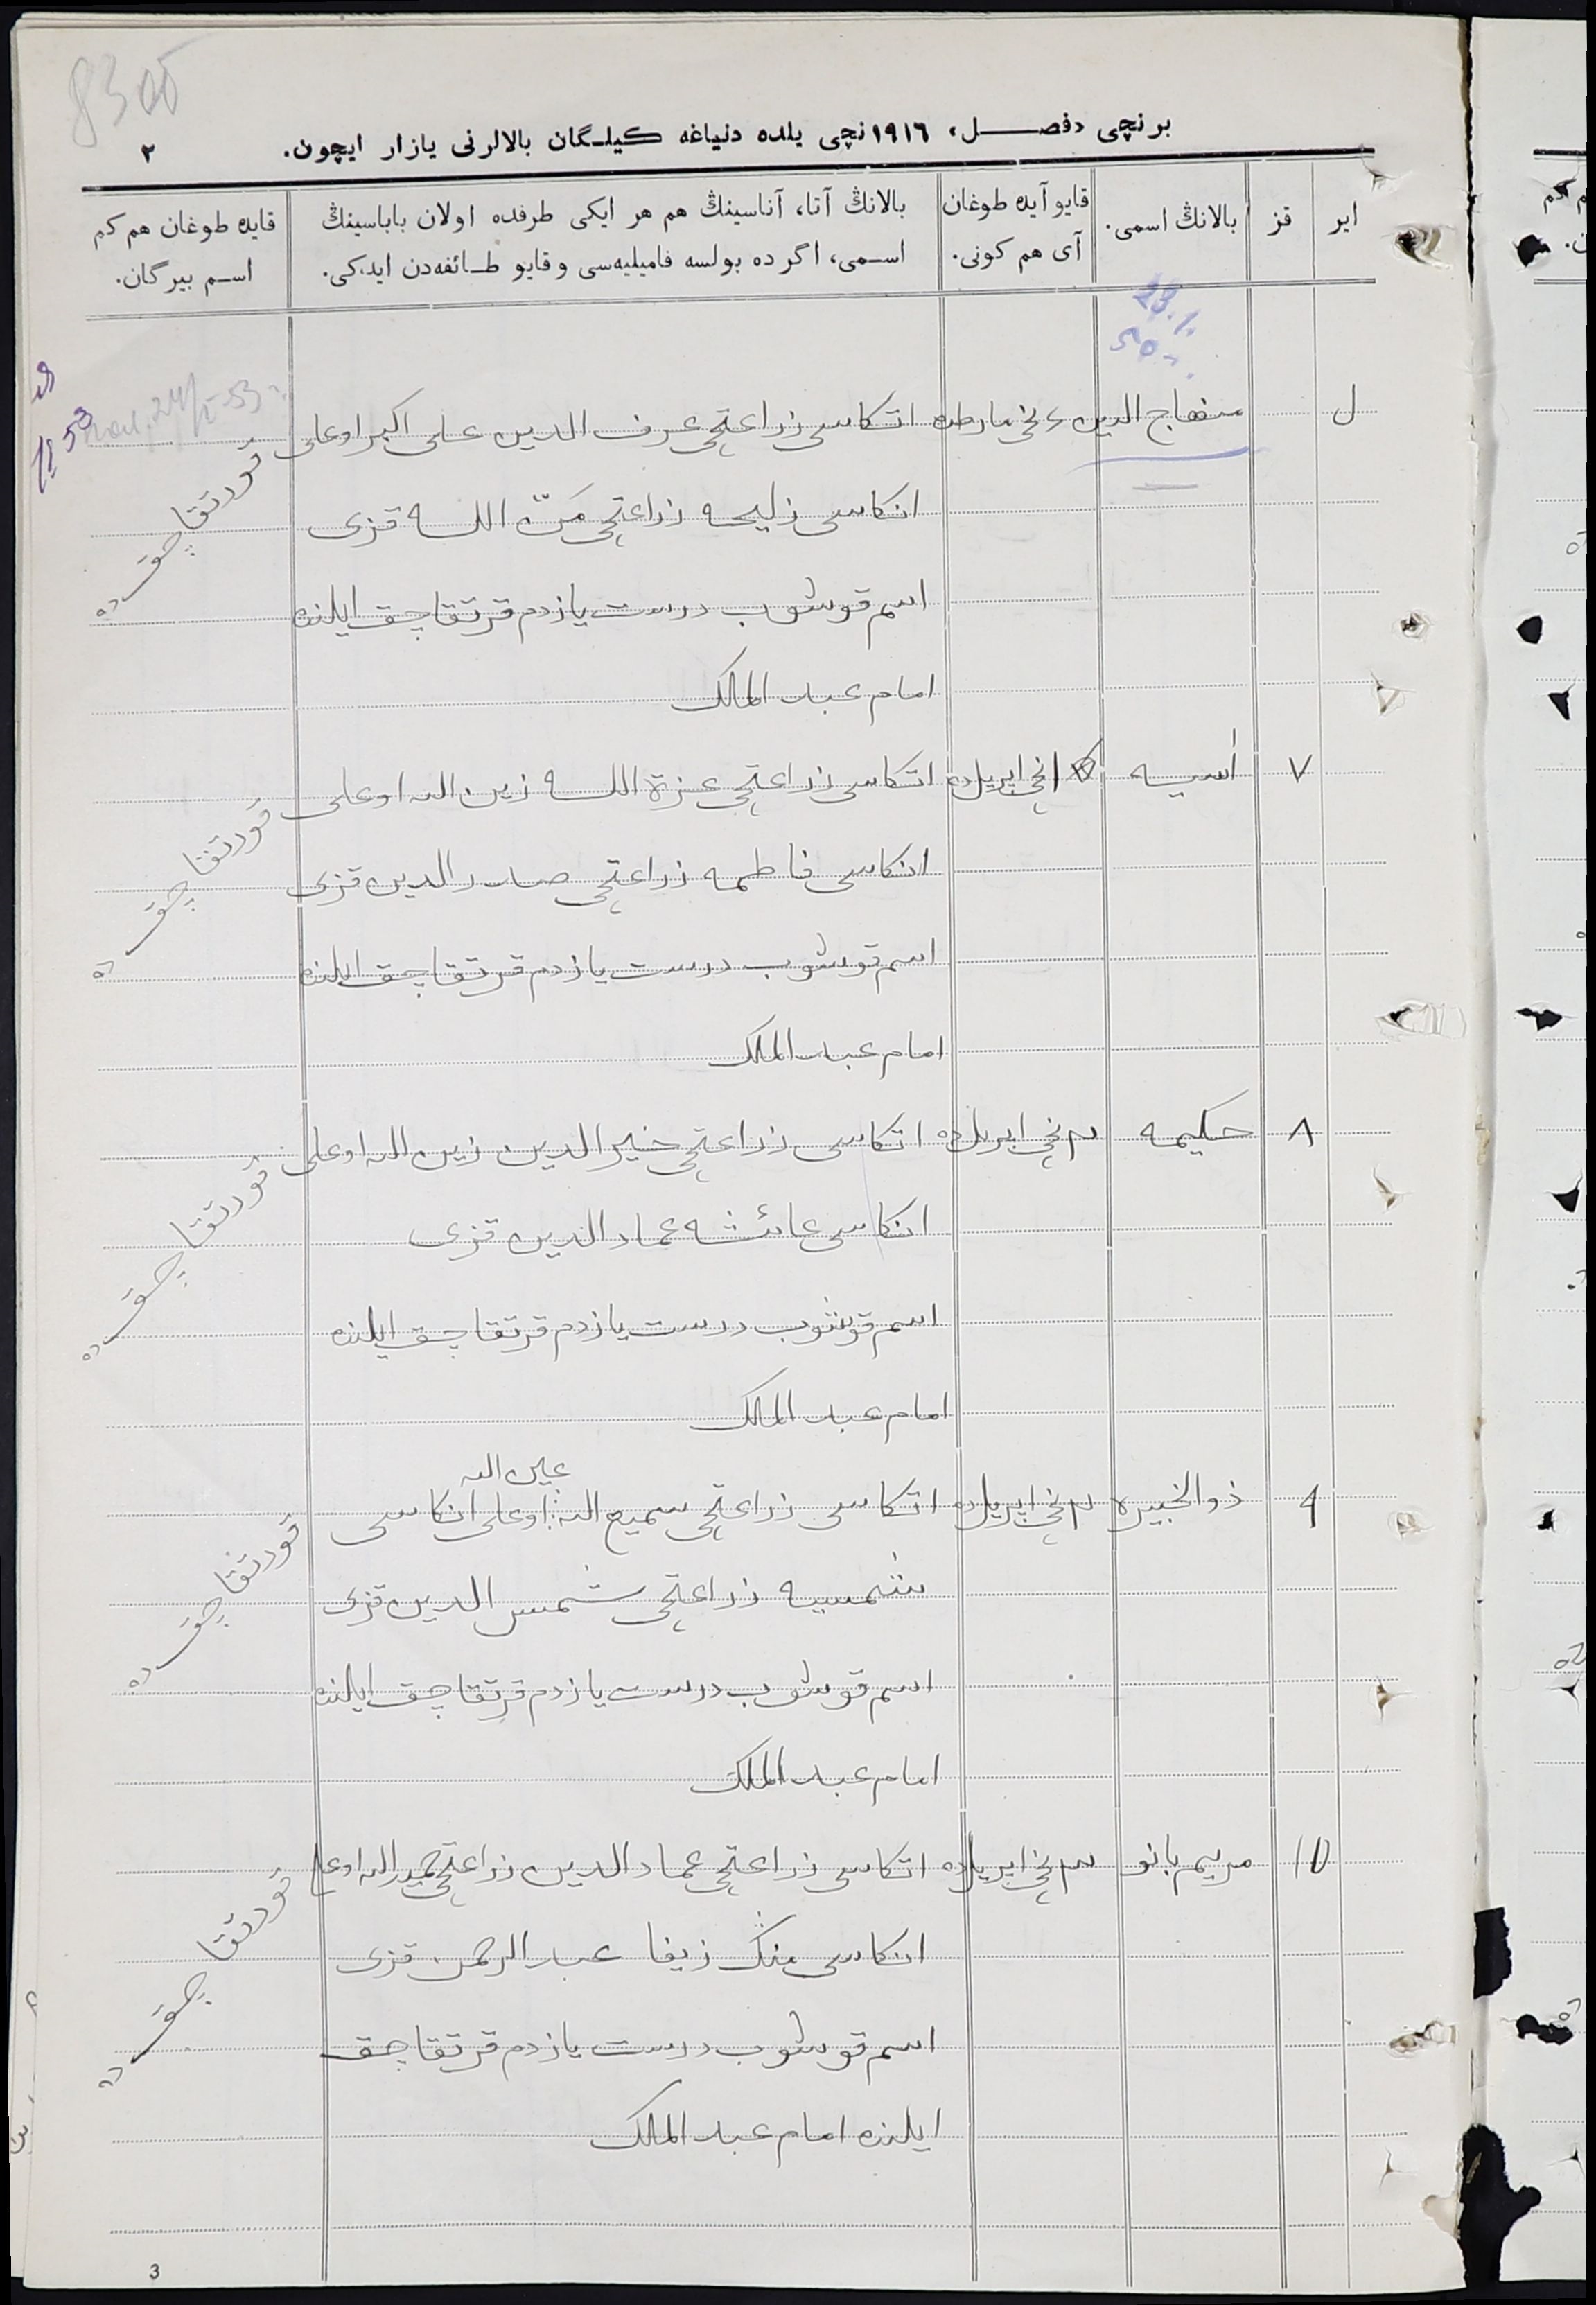 8300
برنچی «فصل» ١٩١٦نچی یلده دنیاغه کیلگان بالالرنی یازار ایچون. ٢
ایر
قز
بالانڭ اسمی.
قایو آیده طوغان
آی هم کونی.
بالانڭ آتا، آناسینڭ هم هر ایکی طرفده اولان باباسینڭ
اسمی، اگرده بولسه فامیلیه‌سی و قایو طائفه‌دن ایدکی.
قایده طوغان هم کم
اسم بیرگان.
منهاج الدین نچی مارطده اتکاسی زراعتچی عرف الدین علی اکبر اوغلی
قورتقاچق ده
انکاسی زلیحه زراعتچی منّ الله قزی
اسم قوشوب درست یازدم قرتقاچق ایلنده
امام عبد المالک
٧ اسیه نچی اپریلده اتکاسی زراعتچی عزة الله زین الله اوغلی
قورتقاچق ده
انکاسی فاطمه زراعتچی صدر الدین قزی
اسم قوشوب درست یازدم قرتقاچق ایلنده
امام عبد الملک
٨ حکیمه ٣ نچی اپریلده اتکاسی زراعتچی خیر الدین زین الله اوغلی
قورتقاچق ده
انکاسی عائشه عماد الدین قزی
اسم قوشوب درست یازدم قرتقاچق ایلنده
امام عبد المالک
عین الله
٩ ذو الخبیره ٣ نچی اپریلده اتکاسی زراعتچی سمیع الله اوغلی انکاسی
قورتقاچق ده
شمسیه زراعتچی شمس الدین قزی
اسم قوشوب درست یازدم قرتقاچق ایلنده
امام عبد الملک
١٥ مریم بانو ٣ نچی اپریلده اتکاسی زراعتچی عماد الدین زراعتچی حمید الله اوغلی
قورتقاچق ده
انکاسی منک زیفا عبد الرحمن قزی
اسم قوشوب درست یازدم قرتقاچق
ایلنده امام عبد المالک
3